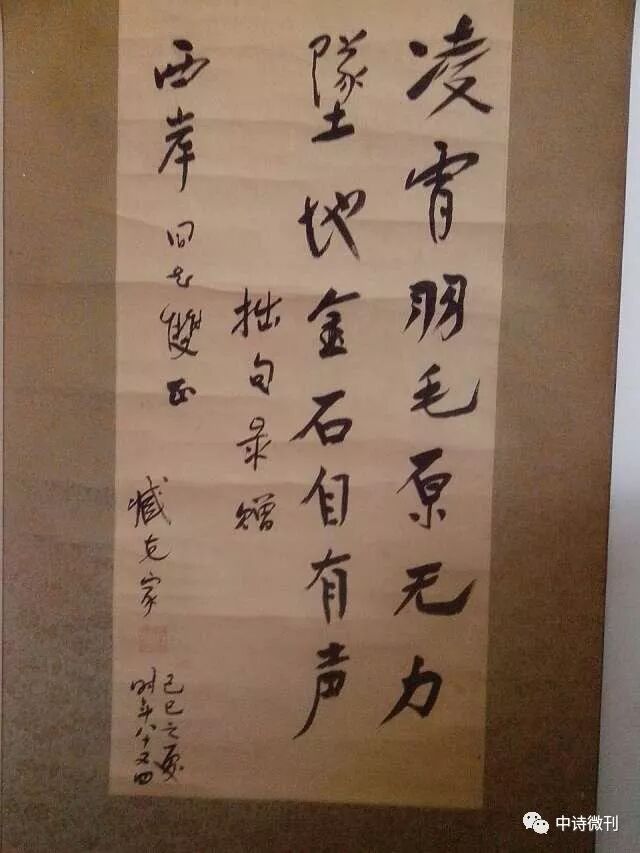 凌霄羽毛原无力
墬地金石自有声
拙句录赠
西岸同志雙正
臧克家
己巳之夏
时年八十又四
中诗微刊